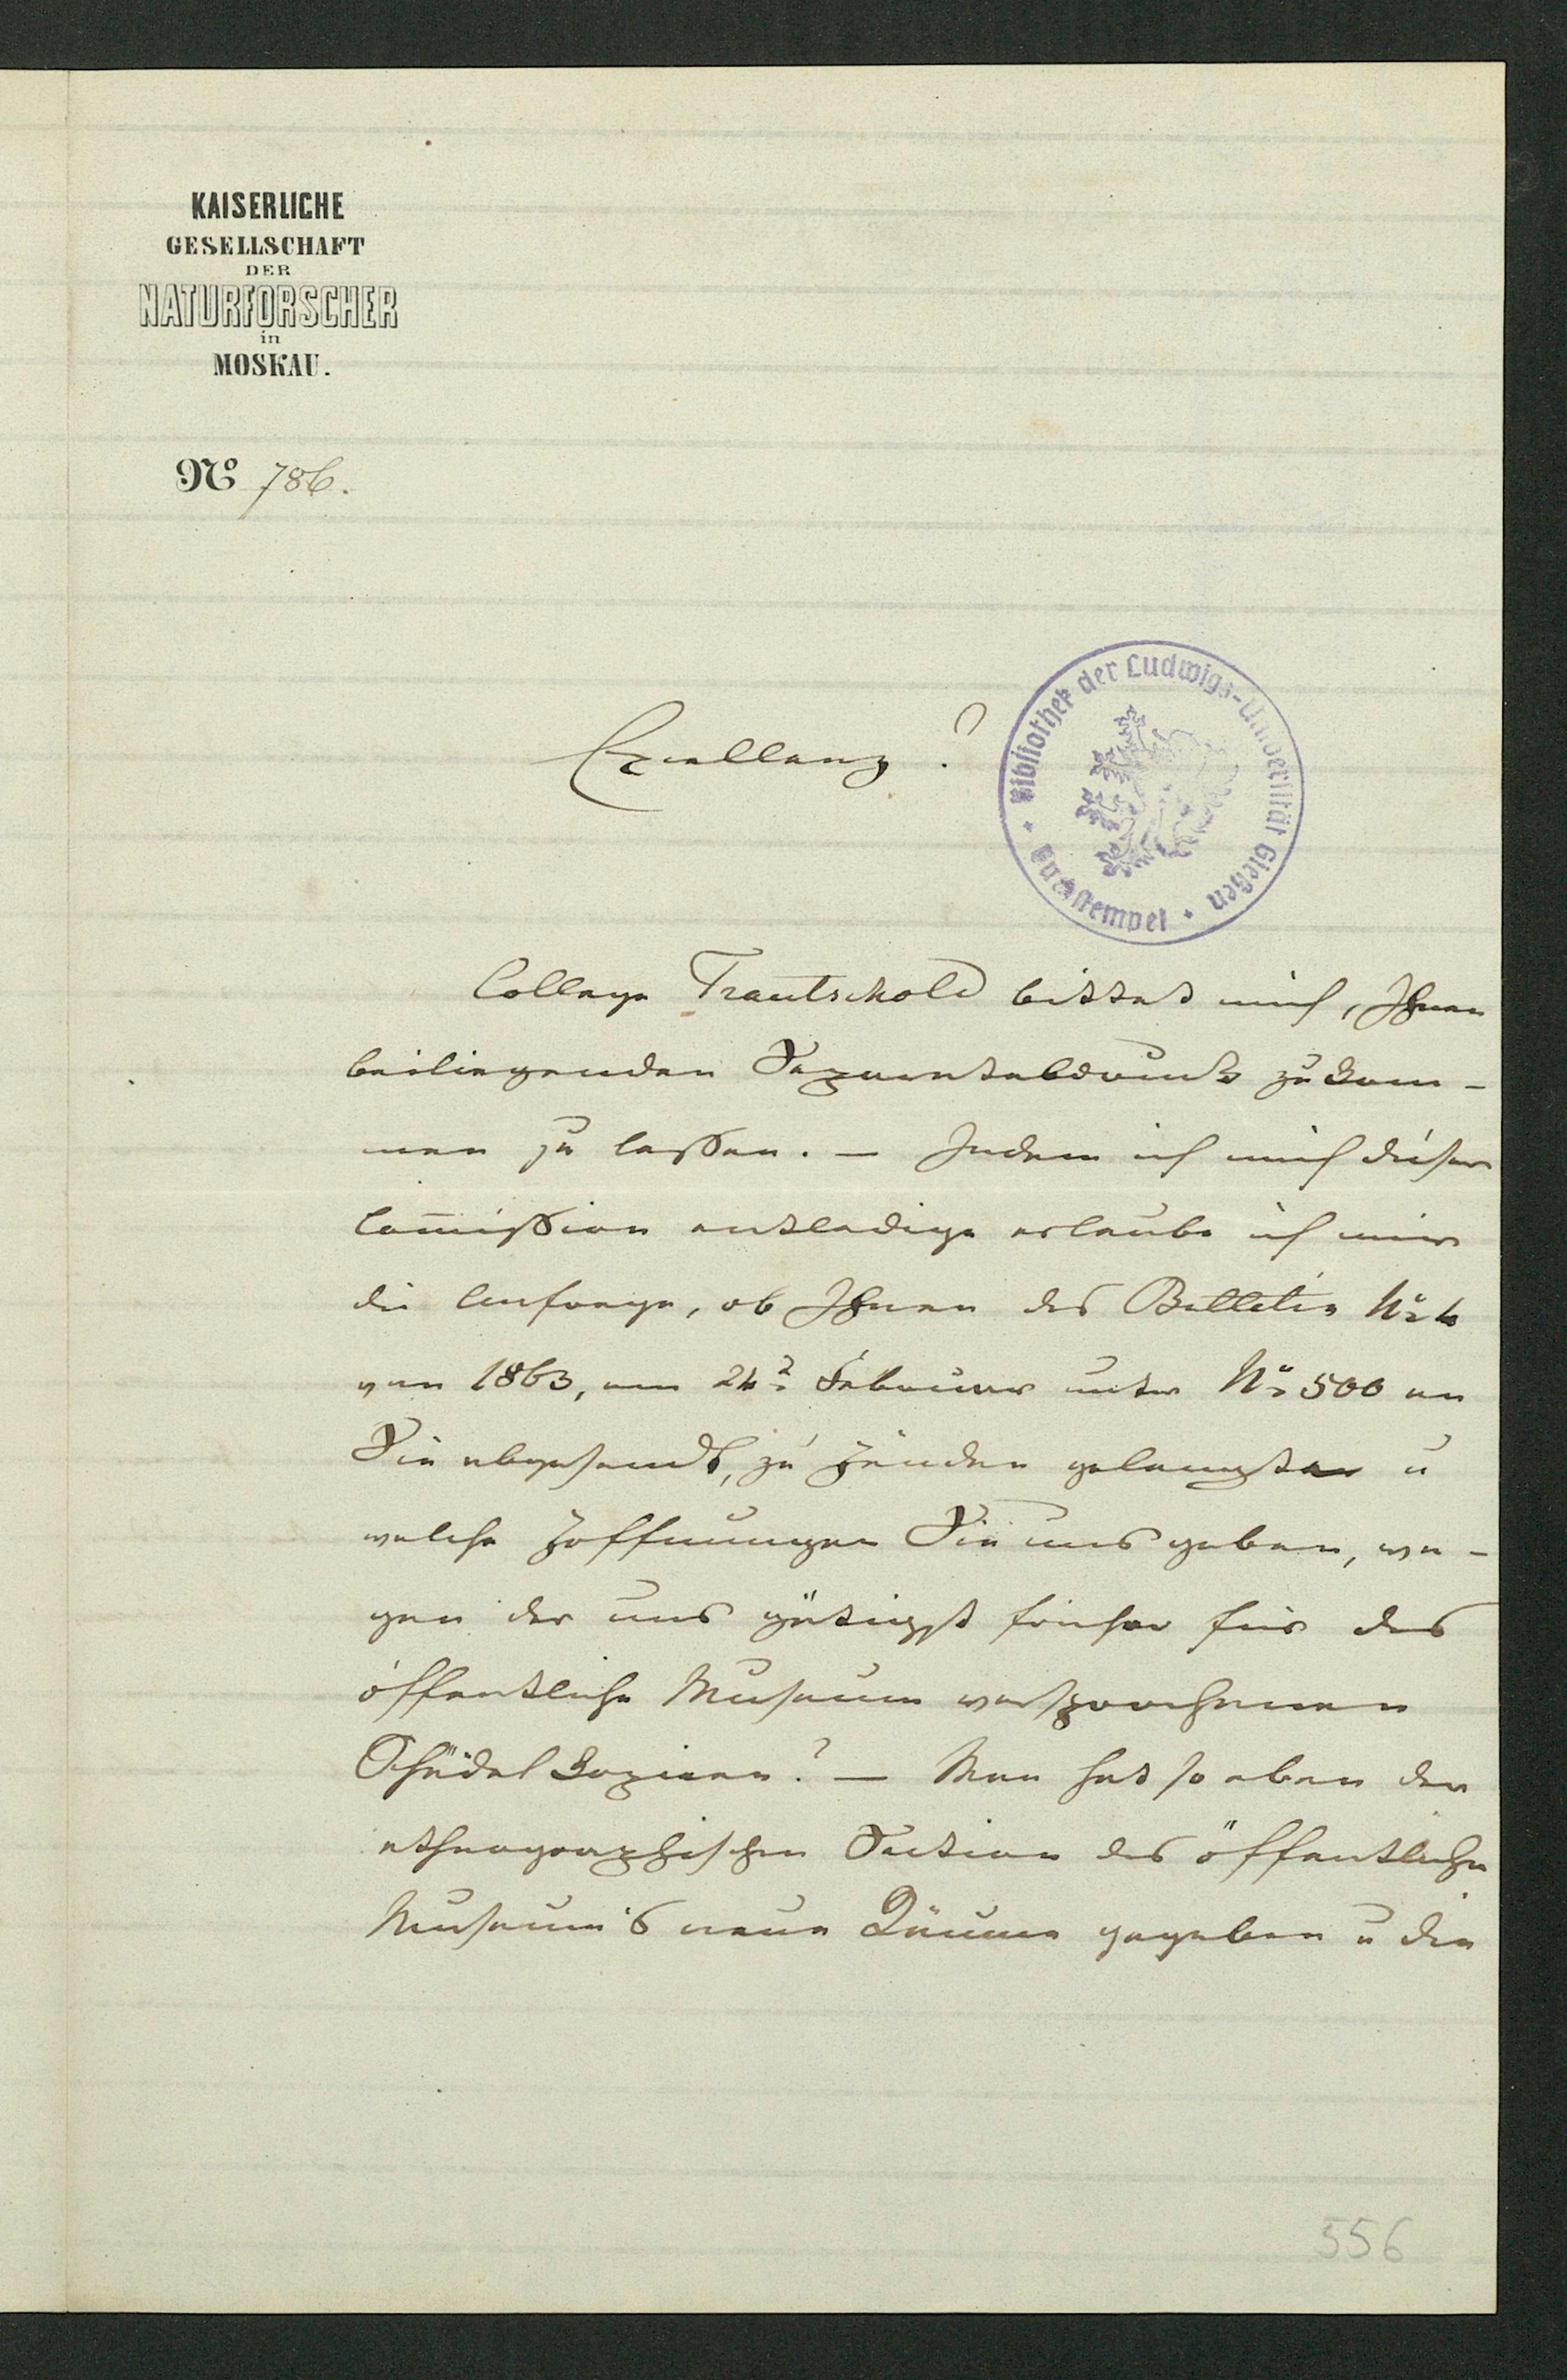 KAISERLICHE
GESELLSCHAFT
DER
NATURFORSCHER
in
MOSKAU.
No 786.
Excellenz!
Bibliothek der Ludwigs-Universität Gießen
Buchstempel
College Trautschold bittet mich, Ihnen
beiliegenden Separatabdruck zukom-
men zu lassen. — Indem ich mich dieser
Com̄ission entledige erlaube ich mir
die Anfrage, ob Ihnen das Bulletin No 4
von 1863, am 24 Februar unter No 500 an
Sie abgesandt, zu Händen gelangt u
welche Hoffnungen Sie uns geben, we-
gen der uns gütigst früher für das
öffentliche Museum versprochenen
Schädel Kopieen? — Man hat so eben der
ethnographischen Section des öffentlichen
Museum's neue Räume gegeben u die
556